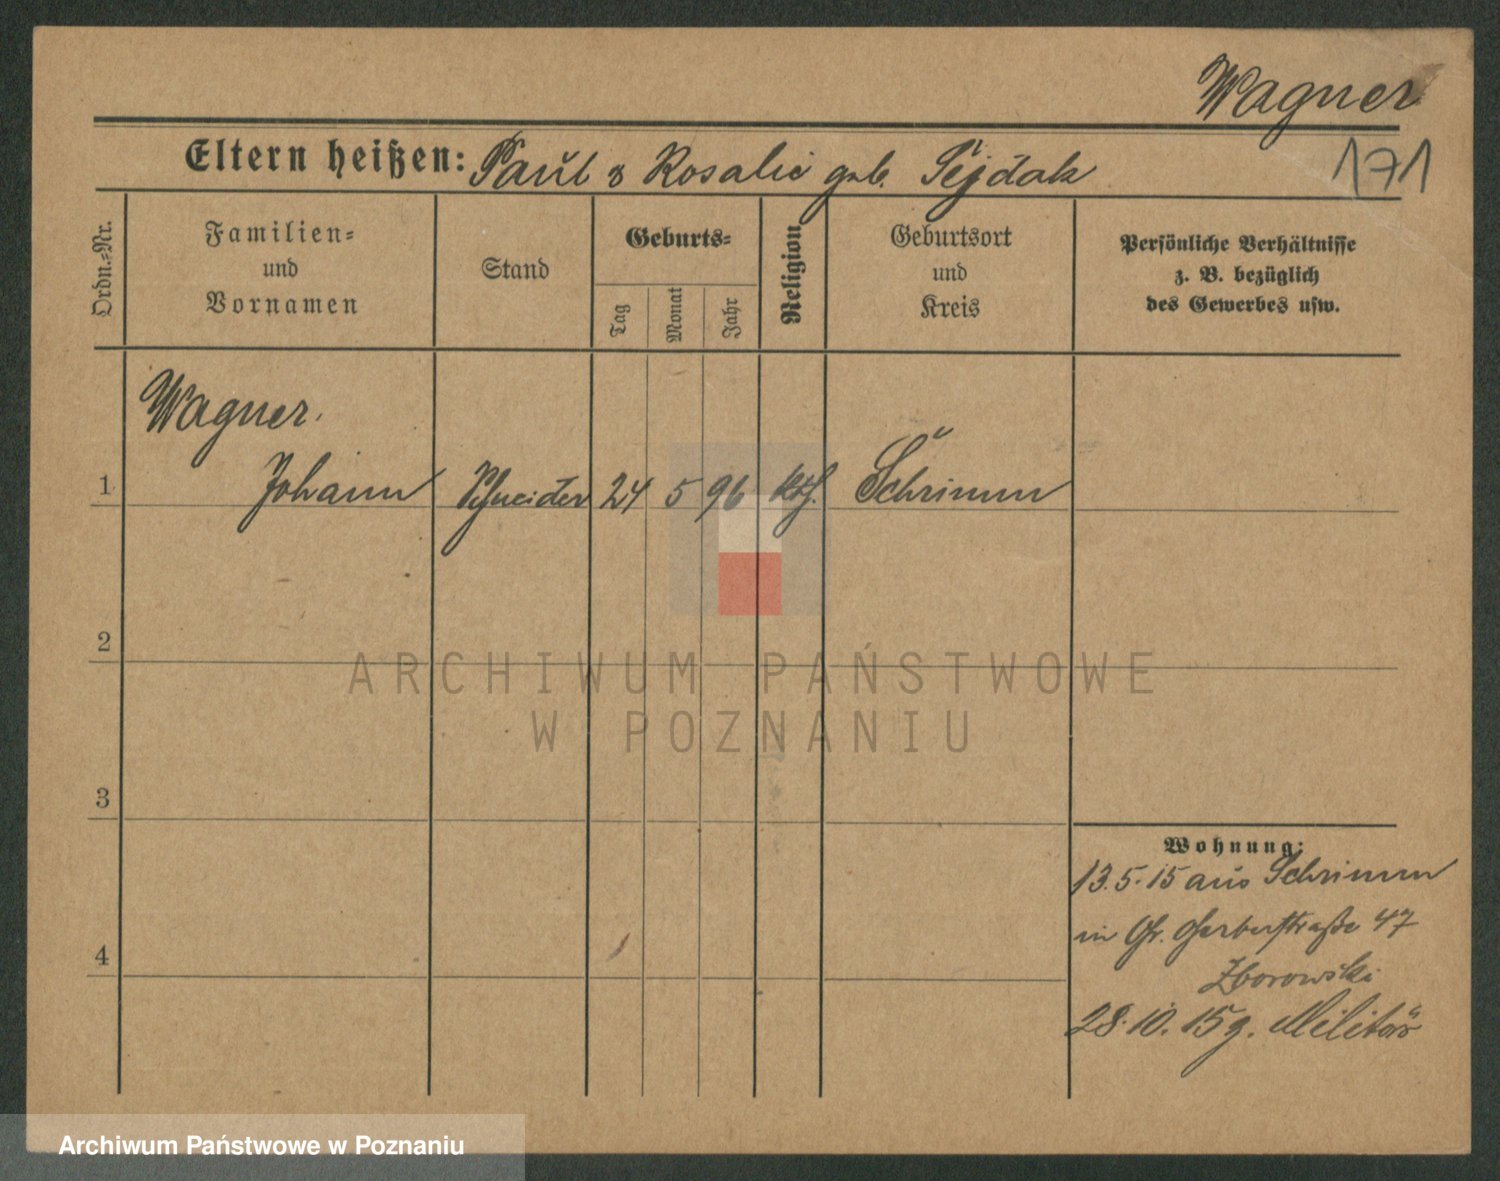 Wagner
171
Eltern heißen: Paul & Rosalie geb. Sejdak
Ordn.-Nr.
Familien-
und
Vornamen
Stand
Geburts-
Tag
Monat
Jahr
Religion
Geburtsort
und
Kreis
Persönliche Verhältnisse
z. B. bezüglich
des Gewerbes usw.
Wagner.
1 Johann Schneider 24 5 96 kth. Schrimm
2
3
4
Wohnung:
13.5.15 aus Schrimm
in Gr. Gerberstraße 47
Zborowski
28.10.15 z. Militär
ARCHIWUM PAŃSTWOWE
W POZNANIU
Archiwum Państwowe w Poznaniu